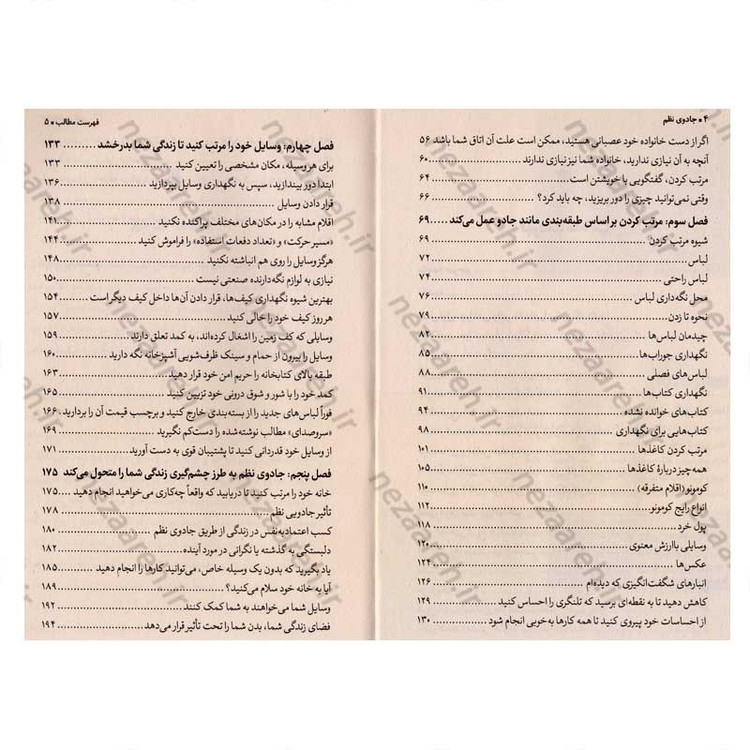 ۴ • جادوی نظم
اگر از دست خانواده خود عصبانی هستید، ممکن است علت آن اتاق شما باشد ۵۶
آنچه به آن نیازی ندارید، خانواده شما نیز نیازی ندارند ........ ۶۰
مرتب کردن، گفتگویی با خویشتن است ........ ۶۴
وقتی نمی‌توانید چیزی را دور بریزید، چه باید کرد؟ ........ ۶۶
فصل سوم: مرتب کردن بر اساس طبقه‌بندی مانند جادو عمل می‌کند ........ ۶۹
شیوه مرتب کردن ........ ۶۹
لباس ........ ۷۲
لباس راحتی ........ ۷۴
محل نگه‌داری لباس ........ ۷۶
نحوه تا زدن ........ ۷۹
چیدمان لباس‌ها ........ ۸۲
نگهداری جوراب‌ها ........ ۸۵
لباس‌های فصلی ........ ۸۸
نگهداری کتاب‌ها ........ ۹۱
کتاب‌های خوانده نشده ........ ۹۴
کتاب‌هایی برای نگهداری ........ ۹۸
مرتب کردن کاغذها ........ ۱۰۱
همه‌چیز درباره‌ی کاغذها ........ ۱۰۵
کومونو (اقلام متفرقه) ........ ۱۱۰
انواع رایج کومونو ........ ۱۱۲
پول خرد ........ ۱۱۸
وسایلی باارزش معنوی ........ ۱۲۰
عکس‌ها ........ ۱۲۴
انبارهای شگفت‌انگیزی که دیده‌ام ........ ۱۲۶
کاهش دهید تا به نقطه‌ای برسید که تلنگری را احساس کنید ........ ۱۲۹
از احساسات خود پیروی کنید تا همه کارها به‌خوبی انجام شود ........ ۱۳۰
فهرست مطالب • ۵
فصل چهارم: وسایل خود را مرتب کنید تا زندگی شما بدرخشد ........ ۱۳۳
برای هر وسیله، مکان مشخصی را تعیین کنید ........ ۱۳۳
ابتدا دور بیندازید، سپس به نگهداری وسایل بپردازید ........ ۱۳۶
قرار دادن وسایل ........ ۱۳۸
اقلام مشابه را در مکان‌های مختلف پراکنده نکنید ........ ۱۴۱
«مسیر حرکت» و «تعداد دفعات استفاده» را فراموش کنید ........ ۱۴۴
هرگز وسایل را روی هم انباشته نکنید ........ ۱۴۸
نیازی به لوازم نگه‌دارنده صنعتی نیست ........ ۱۵۰
بهترین شیوه نگهداری کیف‌ها، قرار دادن آن‌ها داخل کیف دیگر است ........ ۱۵۴
هر روز کیف خود را خالی کنید ........ ۱۵۷
وسایلی که کف زمین را اشغال کرده‌اند، به کمد تعلق دارند ........ ۱۵۹
وسایل را بیرون از حمام و سینک ظرف‌شویی آشپزخانه نگه دارید ........ ۱۶۰
طبقه بالای کتابخانه را حریم امن خود قرار دهید ........ ۱۶۳
کمد خود را با شور و شوق درونی خود تزیین کنید ........ ۱۶۵
فوراً لباس‌های جدید را از بسته‌بندی خارج کنید و برچسب قیمت آن را بردارید ۱۶۶
«سروصدای» مطالب نوشته‌شده را دست‌کم نگیرید ........ ۱۶۹
از وسایل خود قدردانی کنید تا پشتیبان قوی به دست آورید ........ ۱۷۱
فصل پنجم: جادوی نظم به طرز چشم‌گیری زندگی شما را متحول می‌کند ۱۷۵
خانه خود را مرتب کنید تا دریابید که واقعاً چه‌کاری می‌خواهید انجام دهید ........ ۱۷۵
تأثیر جادویی نظم ........ ۱۷۸
کسب اعتمادبه‌نفس در زندگی از طریق جادوی نظم ........ ۱۸۰
دلبستگی به گذشته یا نگرانی در مورد آینده ........ ۱۸۲
یاد بگیرید که بدون یک وسیله خاص، می‌توانید کارها را انجام دهید ........ ۱۸۵
آیا به خانه خود سلام می‌کنید؟ ........ ۱۸۹
وسایل شما می‌خواهند به شما کمک کنند ........ ۱۹۲
فضای زندگی شما، بدن شما را تحت تأثیر قرار می‌دهد ........ ۱۹۴
nezaareh.ir